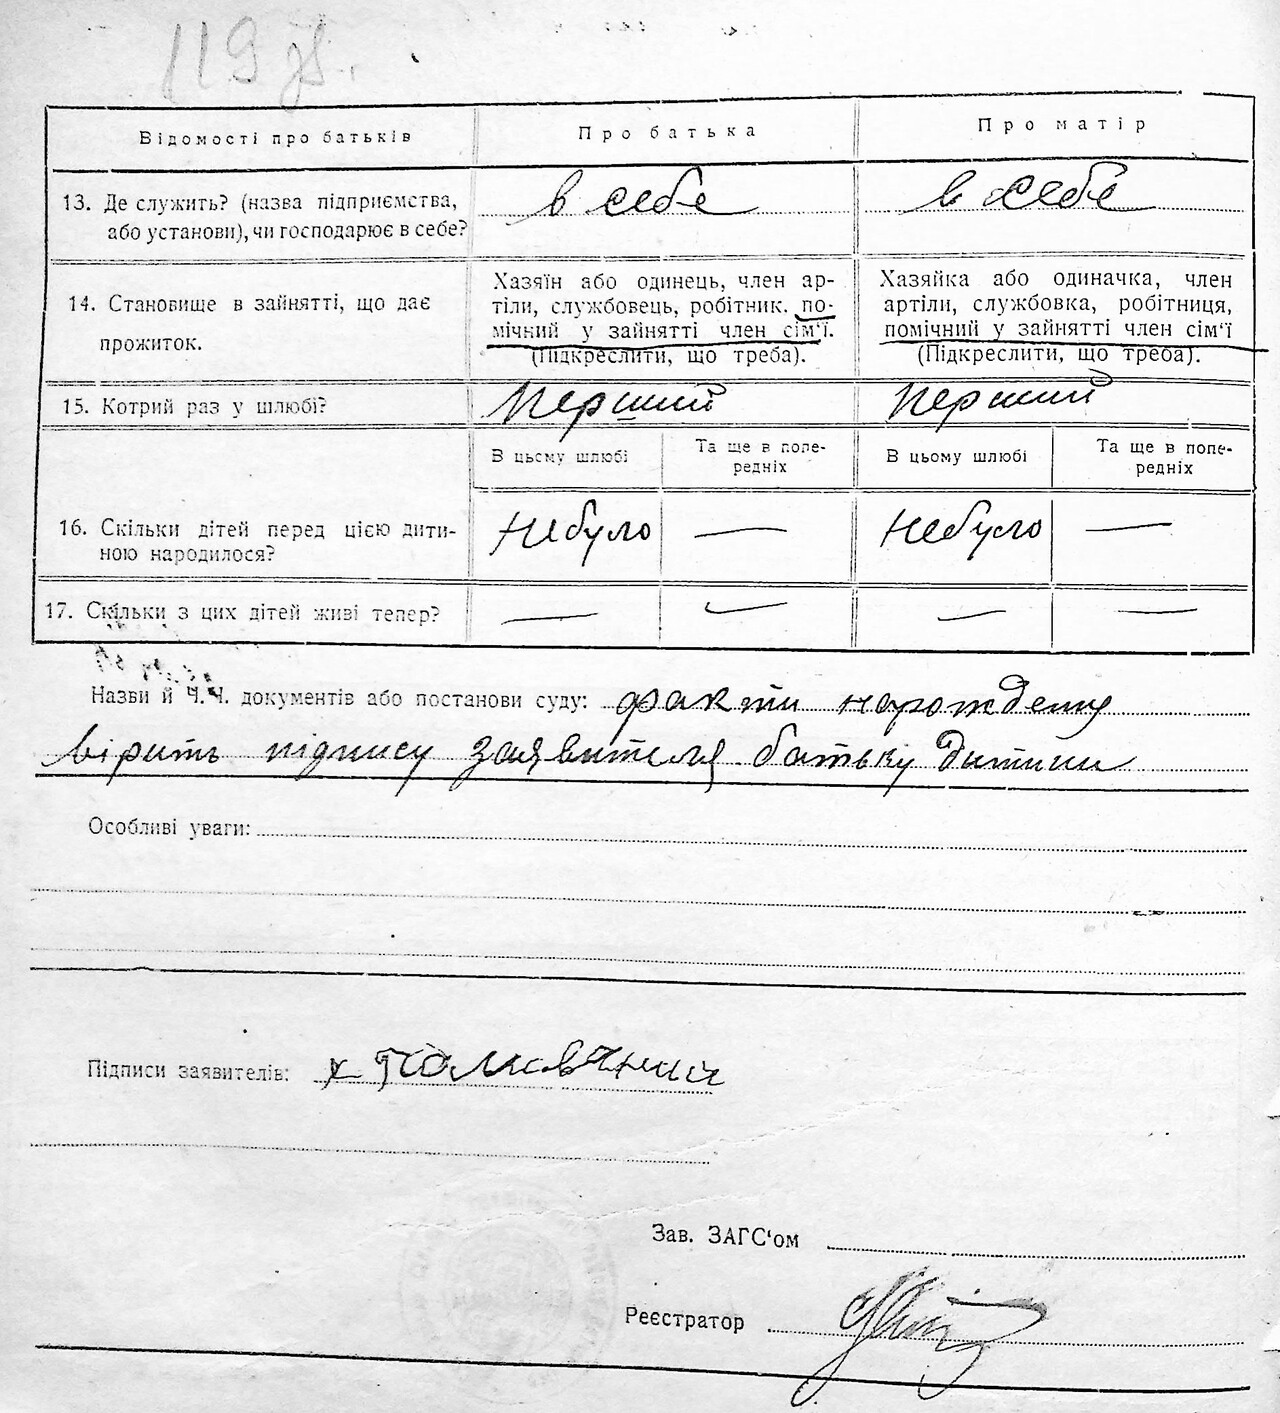 119 зв.
Відомості про батьків
Про батька
Про матір
13. Де служить? (назва підприємства,
або установи), чи господарює в себе?
в себе
в себе
14. Становище в зайнятті, що дає
прожиток.
Хазяїн або одинець, член ар-
тіли, службовець, робітник. по-
мічний у зайнятті член сім'ї.
(Підкреслити, що треба).
Хазяйка або одиначка, член
артіли, службовка, робітниця,
помічний у зайнятті член сім'ї
(Підкреслити, що треба).
15. Котрий раз у шлюбі?
Перший
Перший
В цьому шлюбі
Та ще в попе-
редніх
В цьому шлюбі
Та ще в попе-
редніх
16. Скільки дітей перед цією дити-
ною народилося?
Небуло
—
Небуло
—
17. Скільки з цих дітей живі тепер?
—
—
—
—
Назви й Ч.Ч. документів або постанови суду: факти
вірить підпису заявителя батьку дитини
Особливі уваги:
Підписи заявителів:
Зав. ЗАГС'ом
Реєстратор